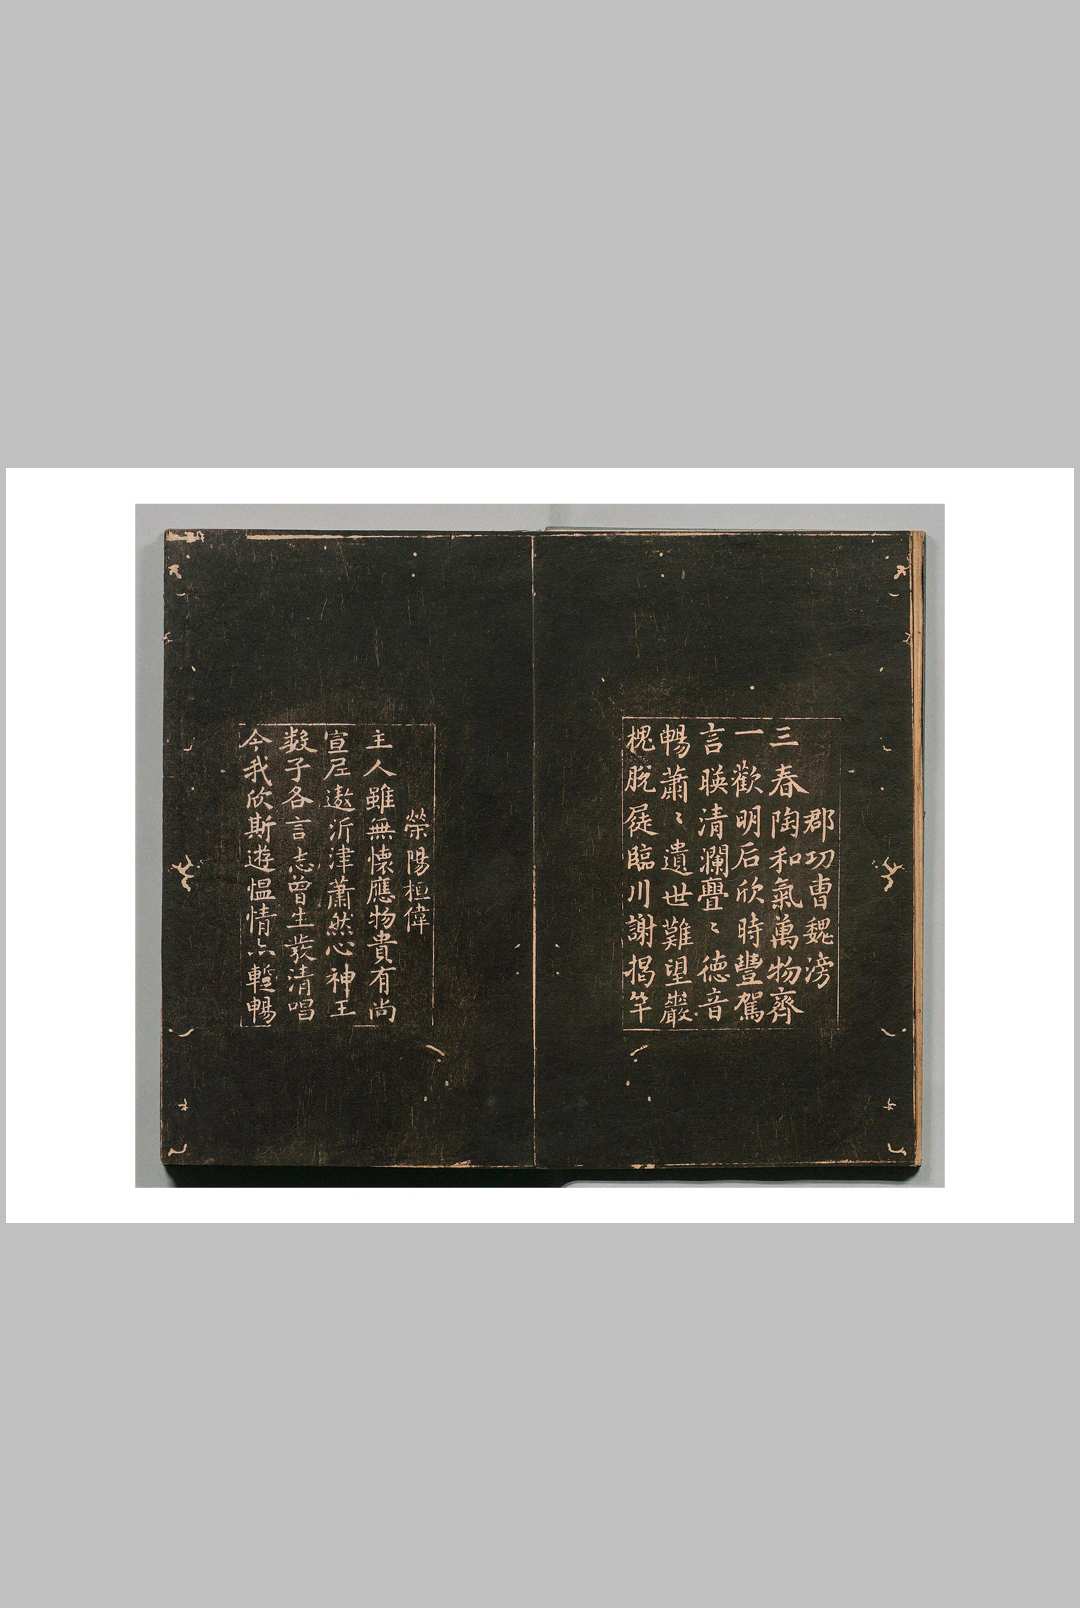 郡功曹魏滂
三春陶和氣萬物齊
一歡明后欣時豐駕
言暎清瀾亹〻德音
暢蕭〻遺世難望巖
愧脫屣臨川謝揭竿
榮陽桓偉
主人雖無懷應物貴有尚
宣尼遨沂津蕭然心神王
數子各言志曾生發清唱
今我欣斯遊慍情亦蹔暢